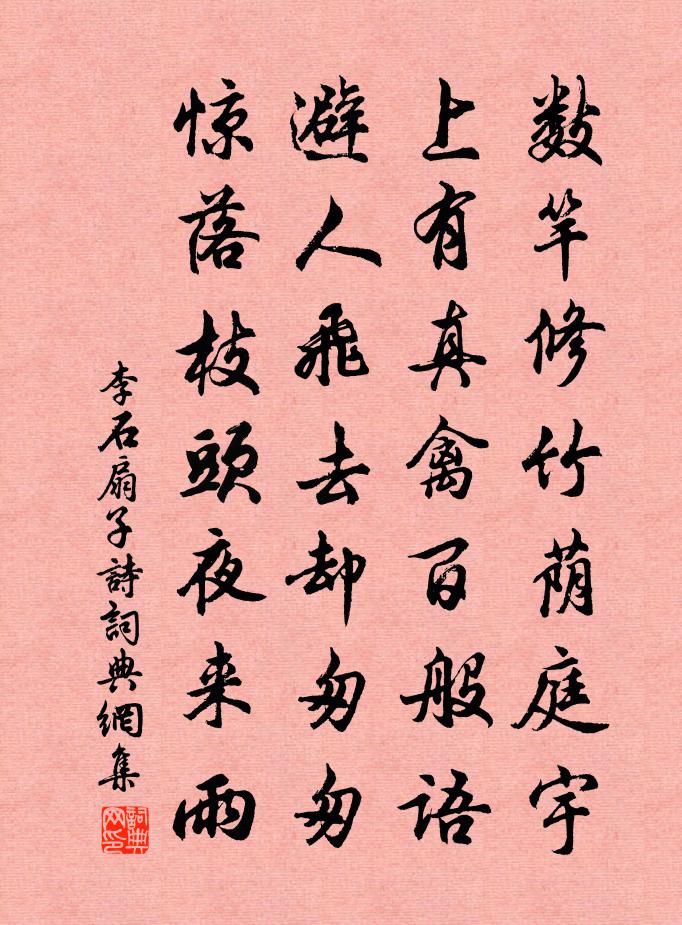 数竿修竹荫庭宇
上有真禽百般语
避人飛去却匆匆
惊落枝頭夜来雨
李石扇子詩詞典網集
詞典网印